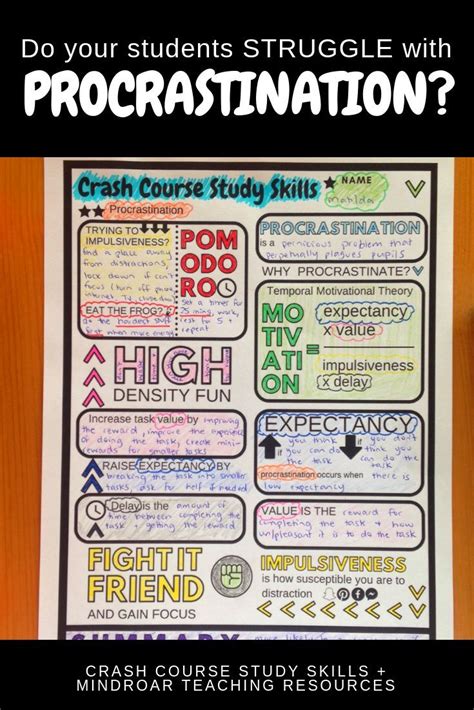 Do your students STRUGGLE with
PROCRASTINATION?
Crash Course Study Skills
NAME
matilda
Procrastination
TRYING TO
IMPULSIVENESS?
find a place away
from distractions,
lock down if can't
focus (turn off phone
internet TV,
EAT THE FROG?
do the hardest stuff
first when more energy
POM
ODO
RO
Set a times for
25 mins, work,
rest for 5 +
repeat
HIGH
DENSITY FUN
Increase task value by improving
the reward, improve the experience
of doing the task, create mini-
rewards for smaller tasks
RAISE EXPECTANCY BY
breaking the task into smaller
tasks, ask for help if needed
Delay is the amount of
time between completing the
task + getting the reward
FIGHT IT
FRIEND
AND GAIN FOCUS
PROCRASTINATION
is a pernicious problem that
perpetually plagues pupils
WHY PROCRASTINATE?
Temporal Motivational Theory
MO
TIV
ATI
ON
=
expectancy
x value
impulsiveness
x delay
EXPECTANCY
you think you can do the task
if you don't think you can do the task
procrastination occurs when there is
low expectancy
VALUE IS THE reward for
completing the task + how
un/pleasant it is to do the task
IMPULSIVENESS
is how susceptible you are to
distraction
SUMMARY
CRASH COURSE STUDY SKILLS +
MINDROAR TEACHING RESOURCES